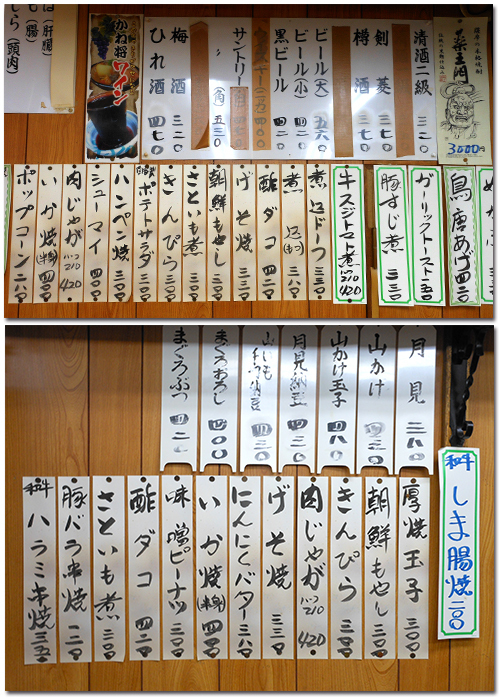 薬王門
3000円
清酒二級 三二〇
剣菱 三七〇
樽酒 三七〇
ビール(大) 五六〇
ビール(小) 四二〇
黒ビール 四二〇
サントリー(角) 五三〇
梅酒 三二〇
ひれ酒 四七〇
かね将
ワイン
しら(頭肉)
鳥唐あげ 四二〇
ガーリックトースト 一五〇
豚すじ煮 三三〇
牛スジトマト煮 ハーフ210 420
煮込ドーフ 三五〇
煮込(もつ) 三八〇
酢ダコ 四二〇
げそ焼 三三〇
朝鮮もやし 三〇〇
さといも煮 三〇〇
きんぴら 三〇〇
自家製ポテトサラダ
ハンペン焼 三〇〇
シューマイ 四二〇
肉じゃが ハーフ210 420
いか焼(半身) 四〇〇
ポップコーン 二八〇
月見
山かけ
山かけ玉子 四八〇
月見納豆 四三〇
まぐろおろし 四〇〇
まぐろぶつ 四二〇
和牛 しま腸焼 三〇〇
厚焼玉子 三〇〇
朝鮮もやし 三〇〇
きんぴら 三〇〇
肉じゃが ハーフ210 420
げそ焼 三三〇
にんにくバター 三八〇
いか焼(半身) 四〇〇
味噌ピーナツ 三〇〇
酢ダコ 四二〇
さといも煮 三〇〇
豚バラ串焼 一二〇
和牛 ハラミ串焼 三五〇